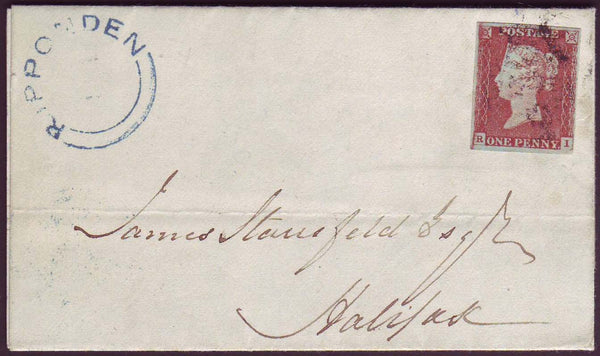 RIPPONDEN
POSTAGE
R I
ONE PENNY
James Stansfeld Esqr
Halifax